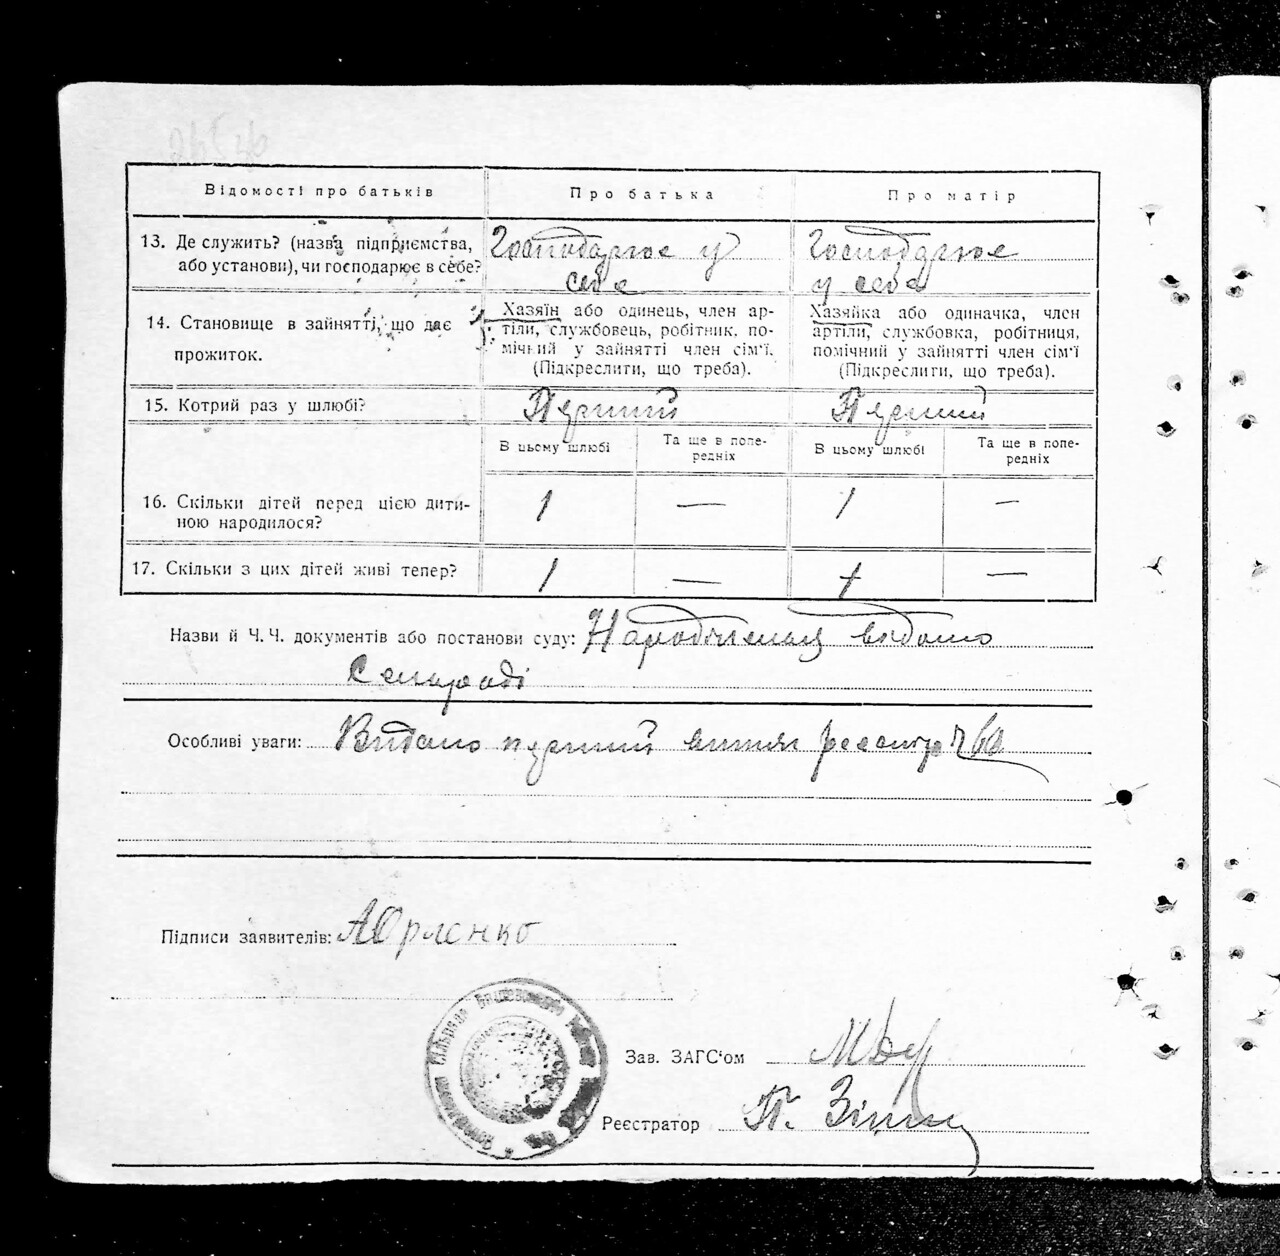 Відомості про батьків
Про батька
Про матір
13. Де служить? (назва підприємства,
або установи), чи господарює в себе?
Господарює у
себе
Господарює
у себе
14. Становище в зайнятті, що дає
прожиток.
Хазяїн або одинець, член ар-
тіли, службовець, робітник, по-
мічний у зайнятті член сім'ї.
(Підкреслити, що треба).
Хазяйка або одиначка, член
артіли, службовка, робітниця,
помічний у зайнятті член сім'ї
(Підкреслити, що треба).
15. Котрий раз у шлюбі?
Перший
Перший
В цьому шлюбі
Та ще в попе-
редніх
В цьому шлюбі
Та ще в попе-
редніх
16. Скільки дітей перед цією дити-
ною народилося?
1 — 1 —
17. Скільки з цих дітей живі тепер?
1 — 1 —
Назви й Ч. Ч. документів або постанови суду: Народження відомо
Сельраді
Особливі уваги: Видано перший випис реєстр
Підписи заявителів: А Юрченко
Зав. ЗАГС'ом
Реєстратор П.